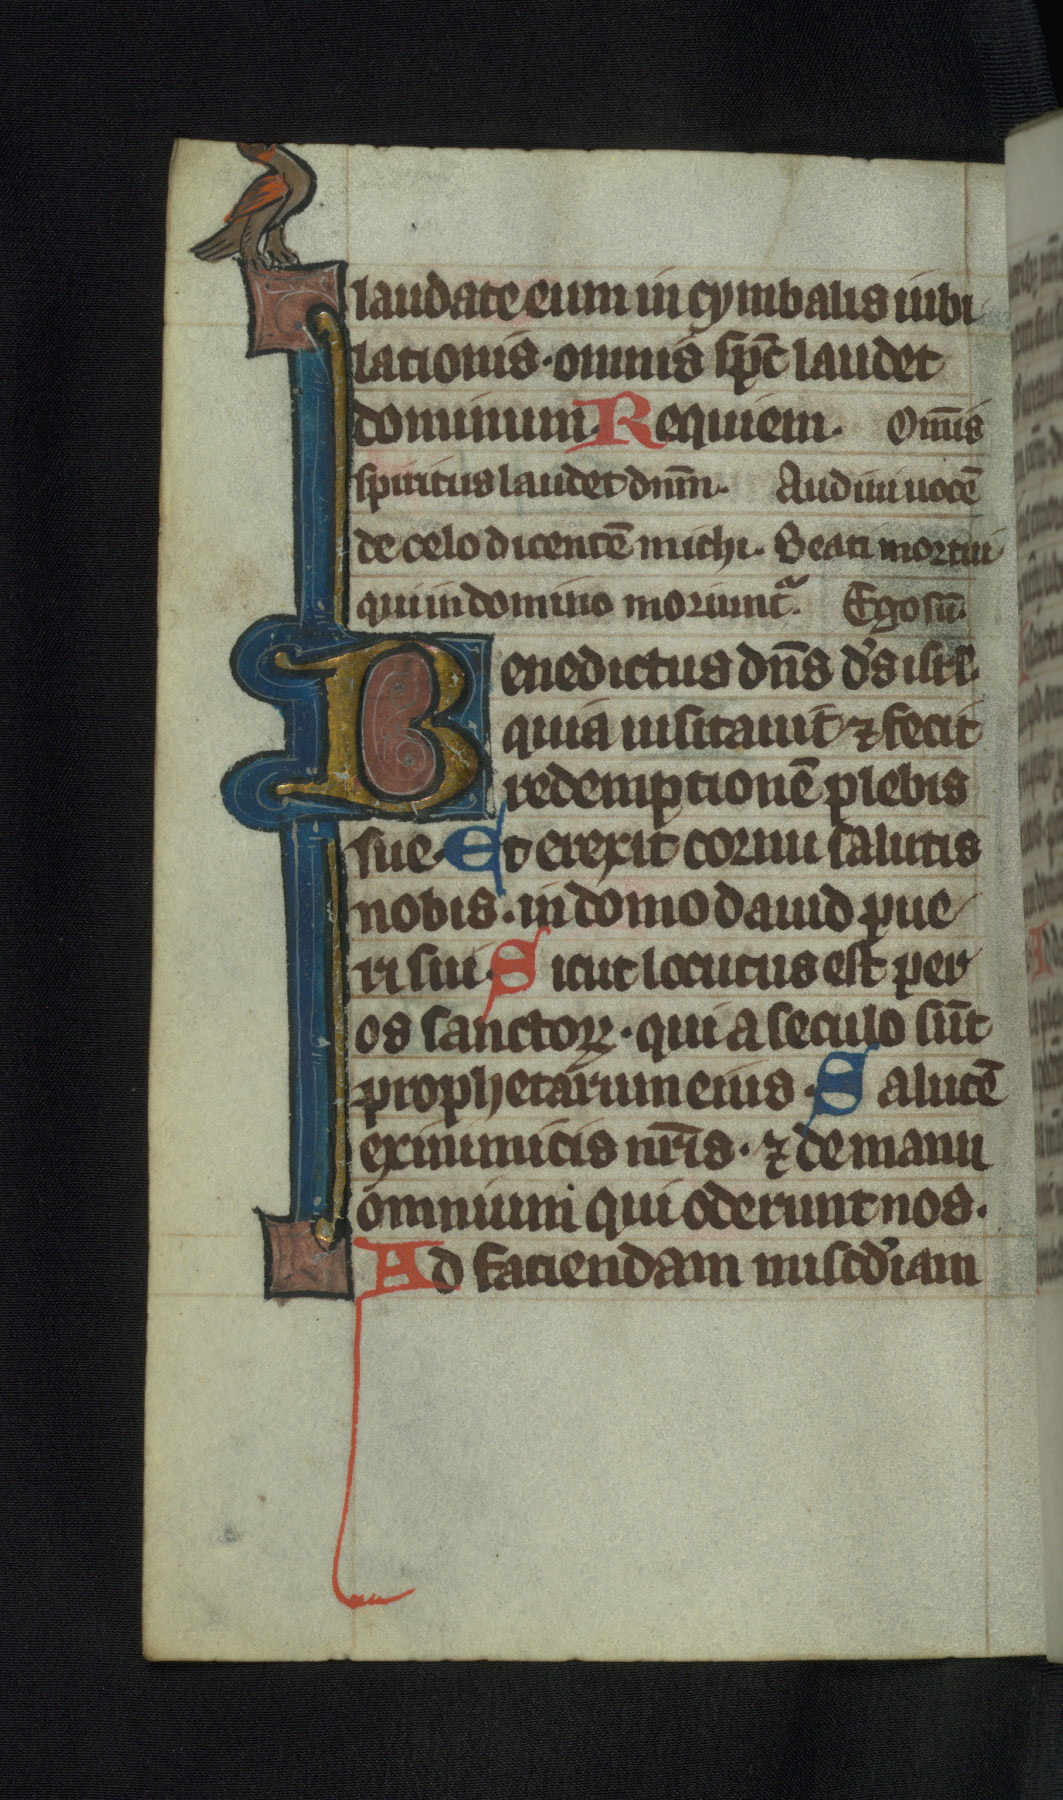 laudate eum in cymbalis iubi
lationis · omnis sp̄c laudet
dominum. Requiem. Om̄is
spiritus laudet dnm̄. Audiui uocē
de celo dicentē michi. Beati mortui
qui in domino moriunt᷑. Ego sū.
Benedictus dn̄s d̄s isrl̄.
quia uisitauit ⁊ fecit
redemptionē plebis
sue. Et erexit cornu salutis
nobis · in domo dauid pue
ri sui. Sicut locutus est per
os sanctoꝝ · qui a seculo sūt
prophetarum eius. Salutē
ex inimicis nr̄is · ⁊ de manu
omnium qui oderunt nos.
Ad faciendam misc̄diam